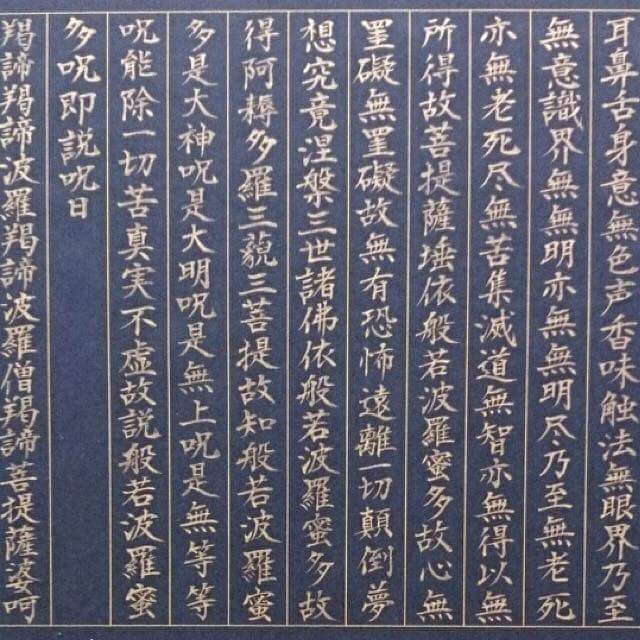 耳鼻舌身意無色声香味触法無眼界乃至
無意識界無無明亦無無明尽乃至無老死
亦無老死尽無苦集滅道無智亦無得以無
所得故菩提薩埵依般若波羅蜜多故心無
罣礙無罣礙故無有恐怖遠離一切顛倒夢
想究竟涅槃三世諸佛依般若波羅蜜多故
得阿耨多羅三藐三菩提故知般若波羅蜜
多是大神呪是大明呪是無上呪是無等等
呪能除一切苦真実不虚故説般若波羅蜜
多呪即説呪曰
羯諦羯諦波羅羯諦波羅僧羯諦菩提薩婆呵